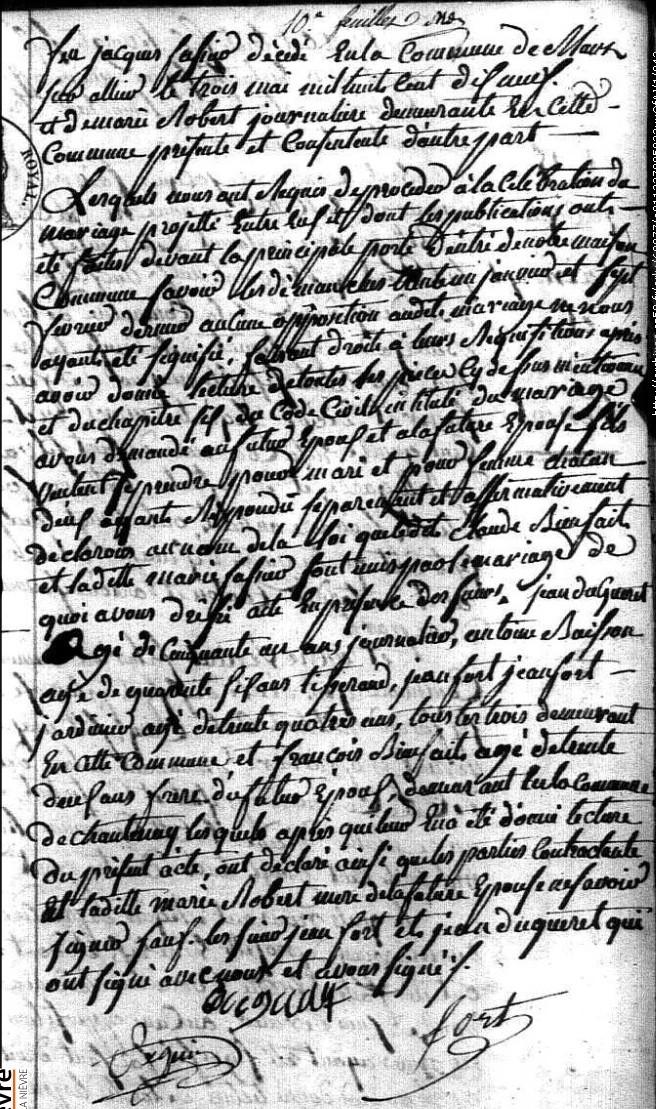 10e feuillet
feu jacques lasne décédé En la Commune de Mars
sur allier le trois mai mil huit cent dix neuf.
et de marie Robert journalière demeurante En Cette
Commune présente et Consentente d'autre part
Lesquels nous ont Requis de proceder à la Celebration du
mariage projetté Entre Eux et dont les publications ont
été faites devant la principale porte d'entré de notre maison
Commune savoir les dimanches trente un janvier et sept
fevrier dernier aucune opposition audit mariage ne nous
ayant été signifié, faisant droit à leurs Requisitions après
avoir donné lecture de toutes les pieces Cy dessus mentionné
et du chapitre six, du Code Civil intitulé du mariage
avons demandé au futur Epoux et a la future Epouse s'ils
veulent se prendre pour mari et pour femme chacun
deux ayants Répondu separement et affirmativement
declarons au nom de la loi que ledit Claude Bienfait
et ladite marie lasne sont unis par le mariage de
quoi avons dressé acte En présence des sieurs jean duqueret
agé de Cinquante un ans journalier, antoine Buisson
agé de quarante six ans tisserand, jean fort jean fort
jardinier, agé de trente quatre ans, tous les trois demeurant
En Cette Commune et françois Bienfait agé de trente
deux ans frere du futur Epoux, demeurant En la Commune
de chantenay lesquels après qu'il leur En à été donné lecture
du présent acte, ont déclaré ainsi que les parties Contractante
et ladite marie Robert mere de la future Epouse ne savoir
signer sauf. les sieurs jean fort et jean duqueret qui
ont signé avec nous et avons signé s.
fort
ROYAL
LA NIÈVRE